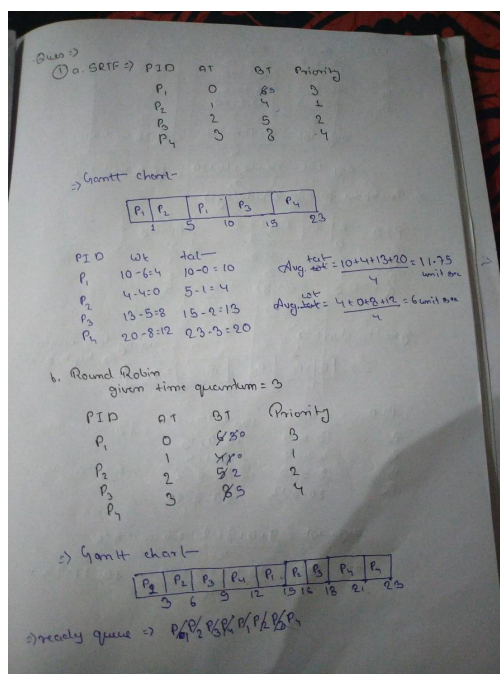 Ques=>
① a. SRTF=> PID AT BT Priority
P₁ 0 3
P₂ 1 4 1
P₃ 2 5 2
P₄ 3 8 4
=> Gantt chart
P₁ P₂ P₁ P₃ P₄
1 5 10 15 23
PID wt tat
P₁ 10-6=4 10-0=10
P₂ 4-4=0 5-1=4
P₃ 13-5=8 15-2=13
P₄ 20-8=12 23-3=20
Avg. tat = 10+4+13+20/4 = 11.75 unit sec
Avg. wt = 4+0+8+12/4 = 6 unit sec
b. Round Robin
given time quantum = 3
PID AT BT Priority
P₁ 0 6 3 0 3
P₂ 1 4 1 0 1
P₃ 2 5 2 2
P₄ 3 8 5 4
=> Gantt chart
P₁ P₂ P₃ P₄ P₁ P₂ P₃ P₄ P₄
3 6 9 12 15 16 18 21 23
=> ready queue => P₁ P₂ P₃ P₄ P₁ P₂ P₃ P₄